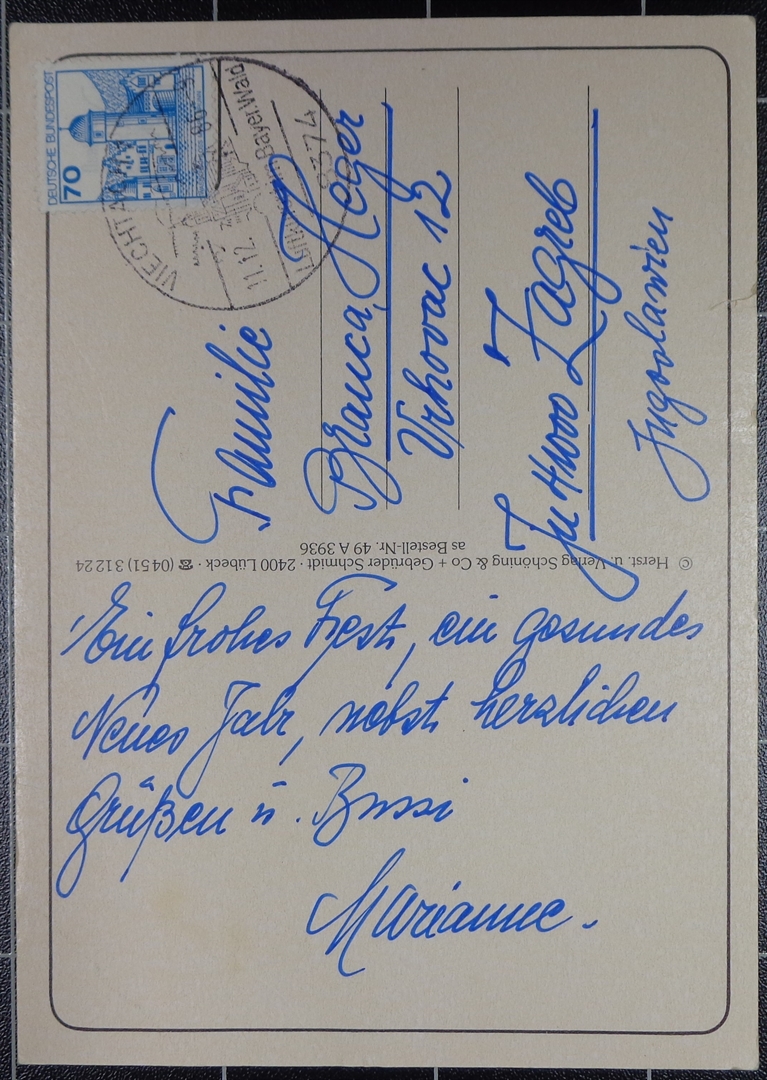 DEUTSCHE BUNDESPOST
70
VIECHTACH
11.12.
Bayer.Wald
8374
Familie
Branca, Heger
Vrhovac 12
Zagreb
Jugoslawien
© Herst. u. Verlag Schöning & Co + Gebrüder Schmidt · 2400 Lübeck · ☎ (0451) 31224
as Bestell-Nr. 49 A 3936
Ein frohes Fest, ein gesundes
Neues Jahr, nebst herzlichen
Grüßen u. Bussi
Marianne.